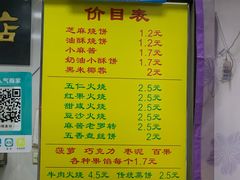 价目表
芝麻烧饼 1.2元
油酥烧饼 1.2元
小麻酱 1.7元
奶油小酥饼 1.7元
黑米椰蓉 2元
五仁火烧 2.5元
红果火烧 2.5元
甜咸火烧 2.5元
豆沙火烧 2.5元
麻酱老罗转 2.5元
五香盘丝饼 2元
菠萝 巧克力 枣泥 百果
各种果馅每个1.7元
牛肉火烧 4.5元 传统蒸饼 2元
店
人气商家